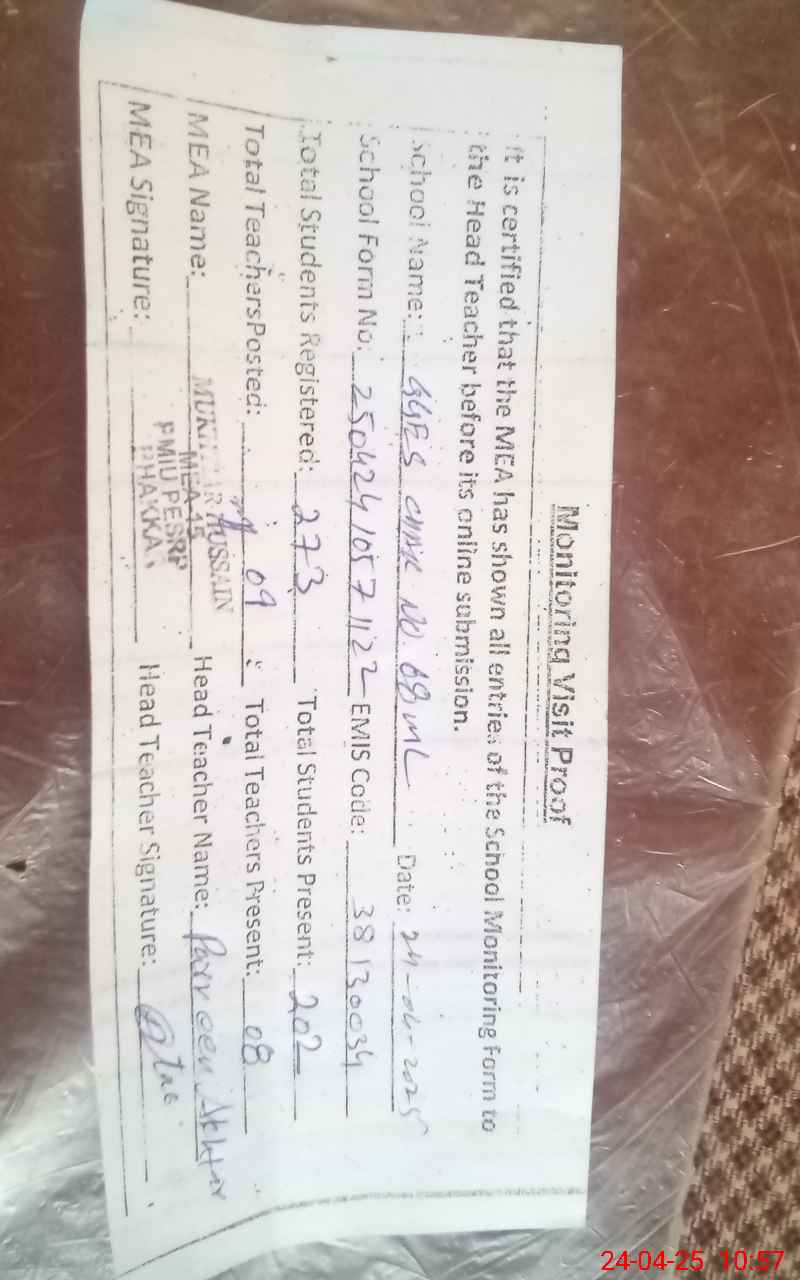 Monitoring Visit Proof
It is certified that the MEA has shown all entries of the School Monitoring Form to
the Head Teacher before its online submission.
School Name: GGES CHAK NO 68 ML Date: 24-04-2025
School Form No: 25042410571122 EMIS Code: 38130034
Total Students Registered: 273 Total Students Present: 202
Total Teachers Posted: 09 Total Teachers Present: 08
MEA Name: HUSSAIN Head Teacher Name: Parveen Akhtar
MEA-15
PMIU PESRP
BHAKKAR
MEA Signature: Head Teacher Signature:
24-04-25 10:57